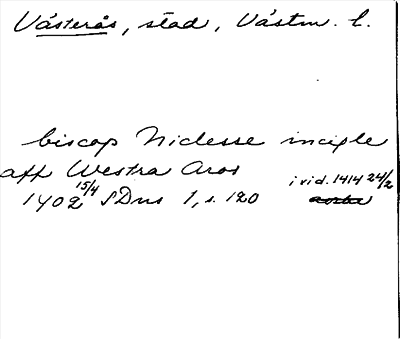 Västerås, stad, Västm. l.
biscop Niclesse inciple
aff Westra Aros
1402 15/4 SDns 1, s. 120 i vid. 1414 24/2